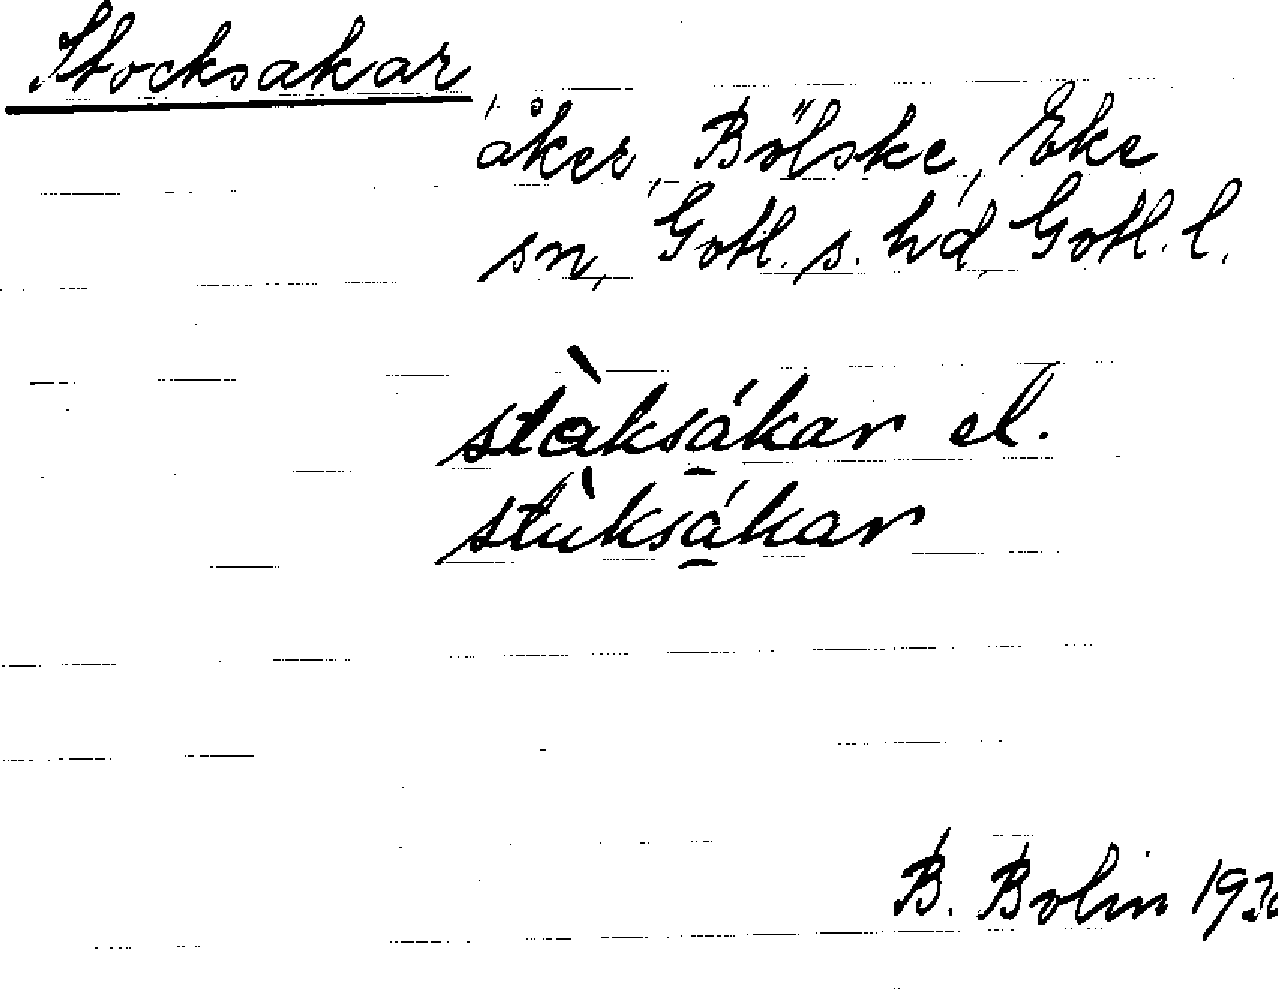 Stocksakar,
åker, Bölske, Eke
sn, Gotl. s. hd, Gotl. l.
stàksákar el.
stùksákar
B. Bolin